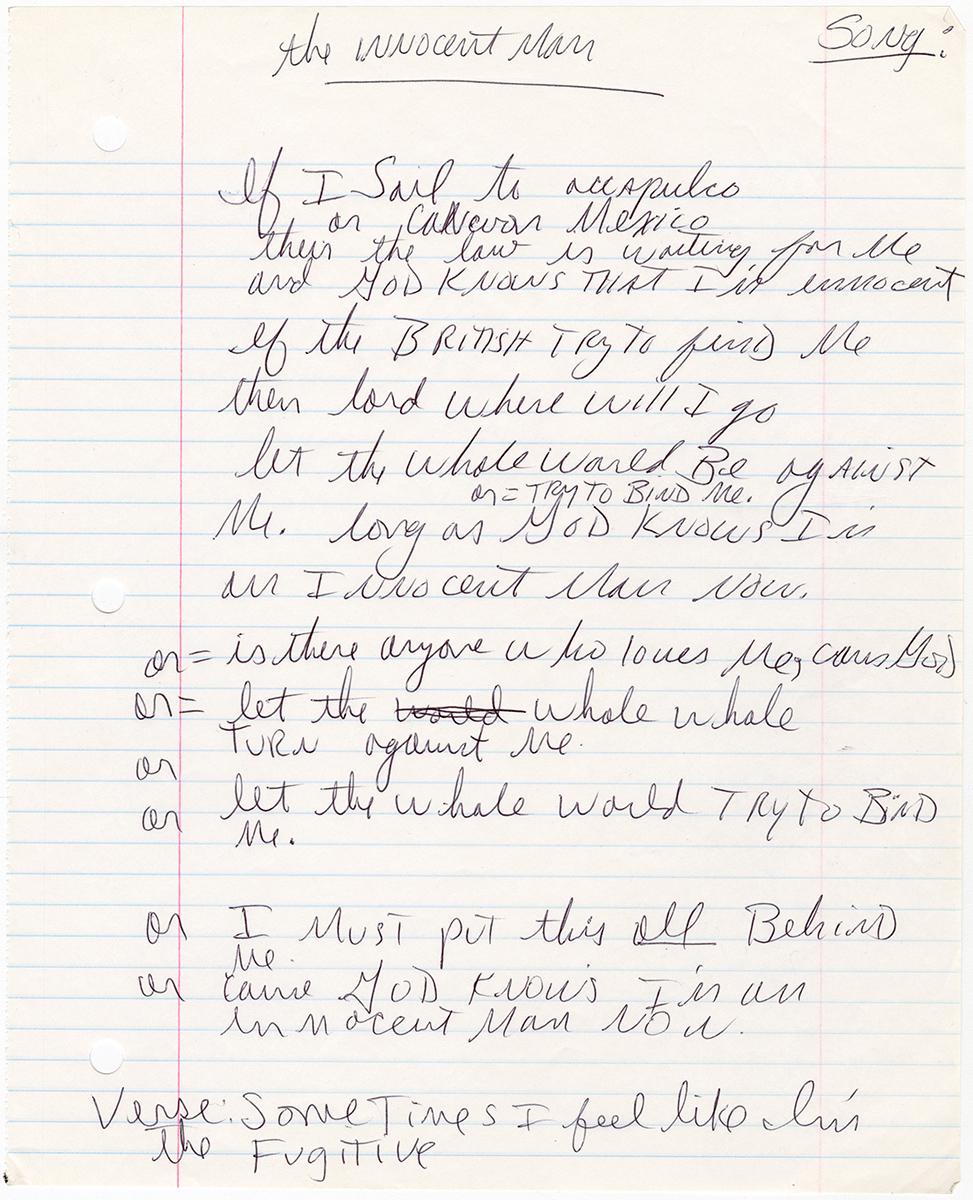 the innocent Man
Song:
If I Sail to accapulco
or Cancun Mexico
then the law is waiting for Me
and GOD KNOWS THAT I'm innocent
If the BRITISH TRY TO find Me
then lord where will I go
let the whole world Be agAINST
or = TRY TO BIND Me.
Me. long as GOD KNOWS I'm
an INNOCENT Man NOW.
or = is there anyone who loves Me, caus God
or = let the world whole whole
TURN against Me.
or
or let the whole world TRY TO BIND
Me.
or I MUST put this all BehinD
Me.
or cause GOD KNOWS I'm an
InnOCENT Man NOW.
Verse: SomeTimes I feel like I'm
the FUGITIVE